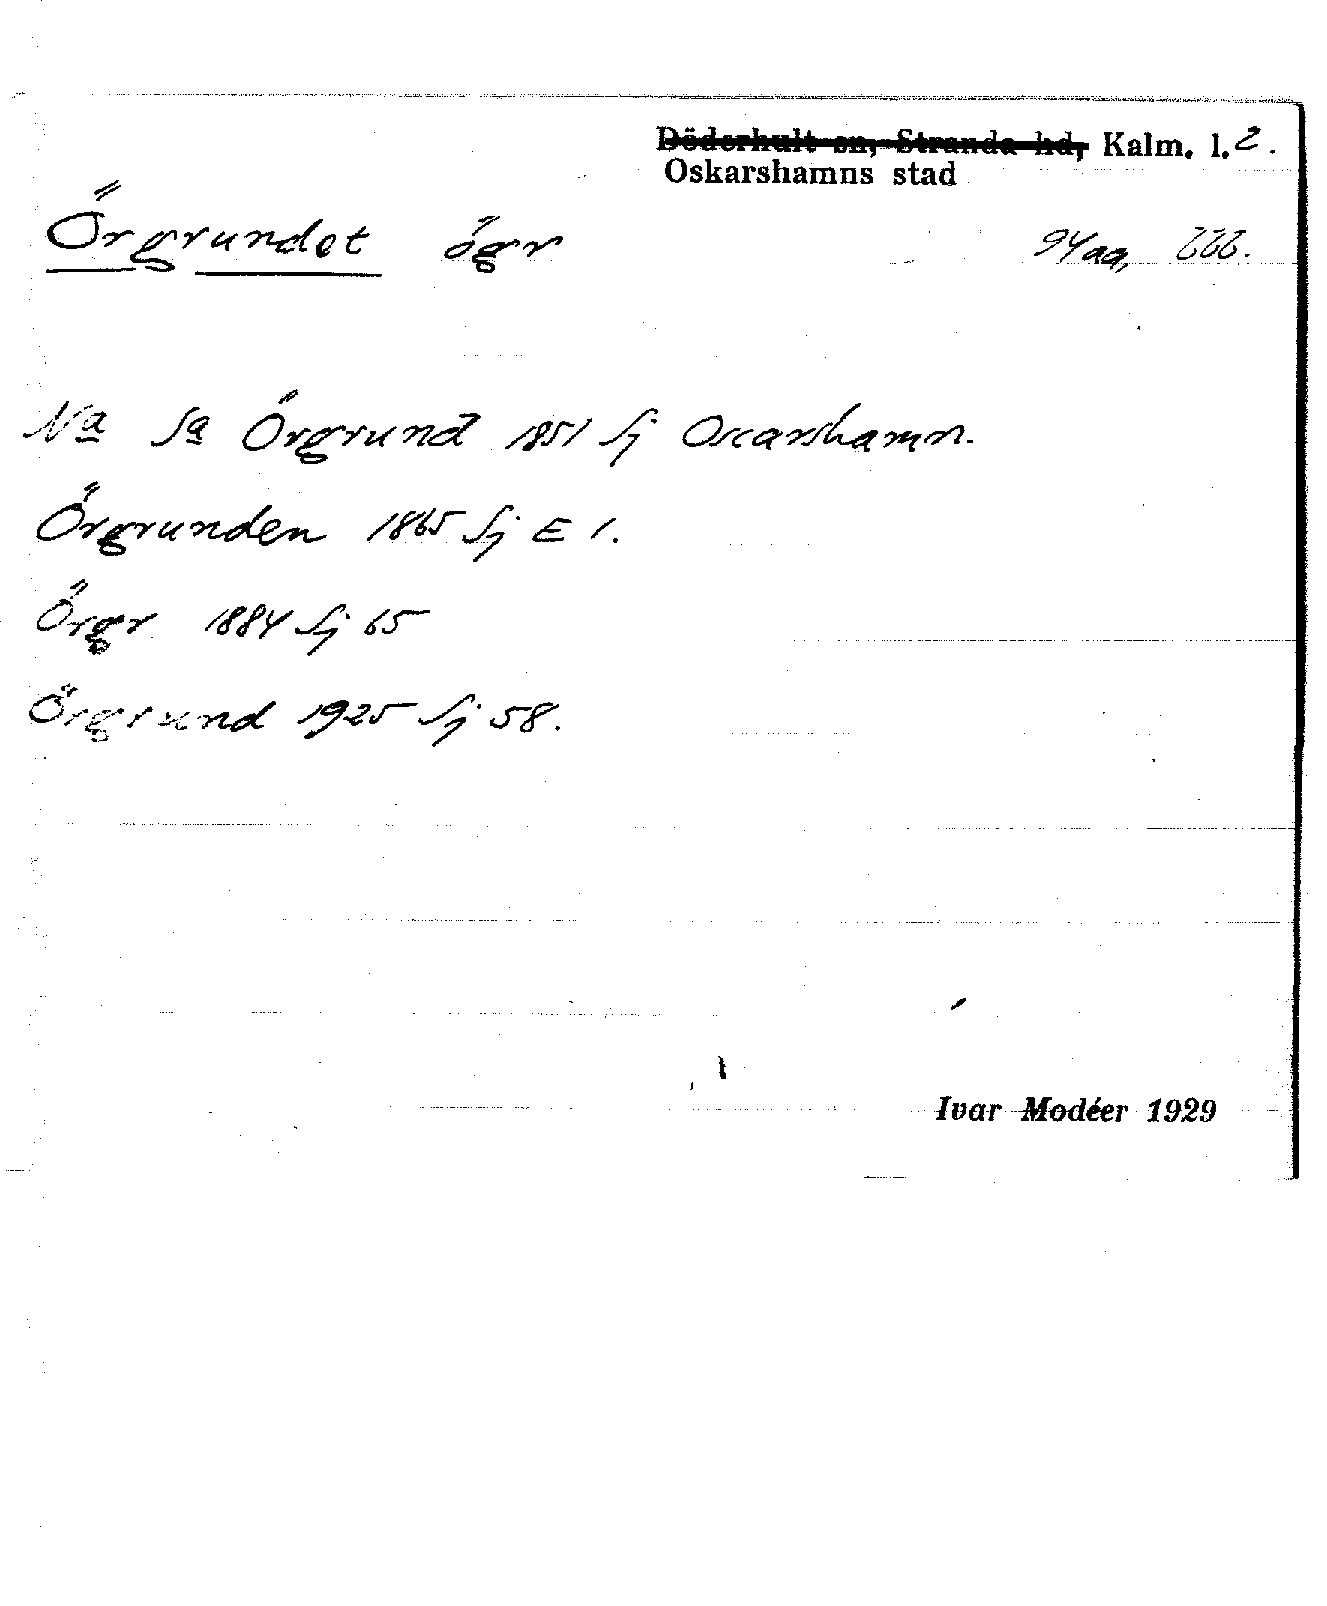 Döderhult sn, Stranda hd, Kalm. l. 2.
Oskarshamns stad
Örgrundet ögr 94aa,
Na Sa Örgrund 1851 Sj Oscarshamn.
Örgrunden 1865 Sj E 1.
Örgr 1884 Sj 65
Örgrund 1925 Sj 58.
Ivar Modéer 1929